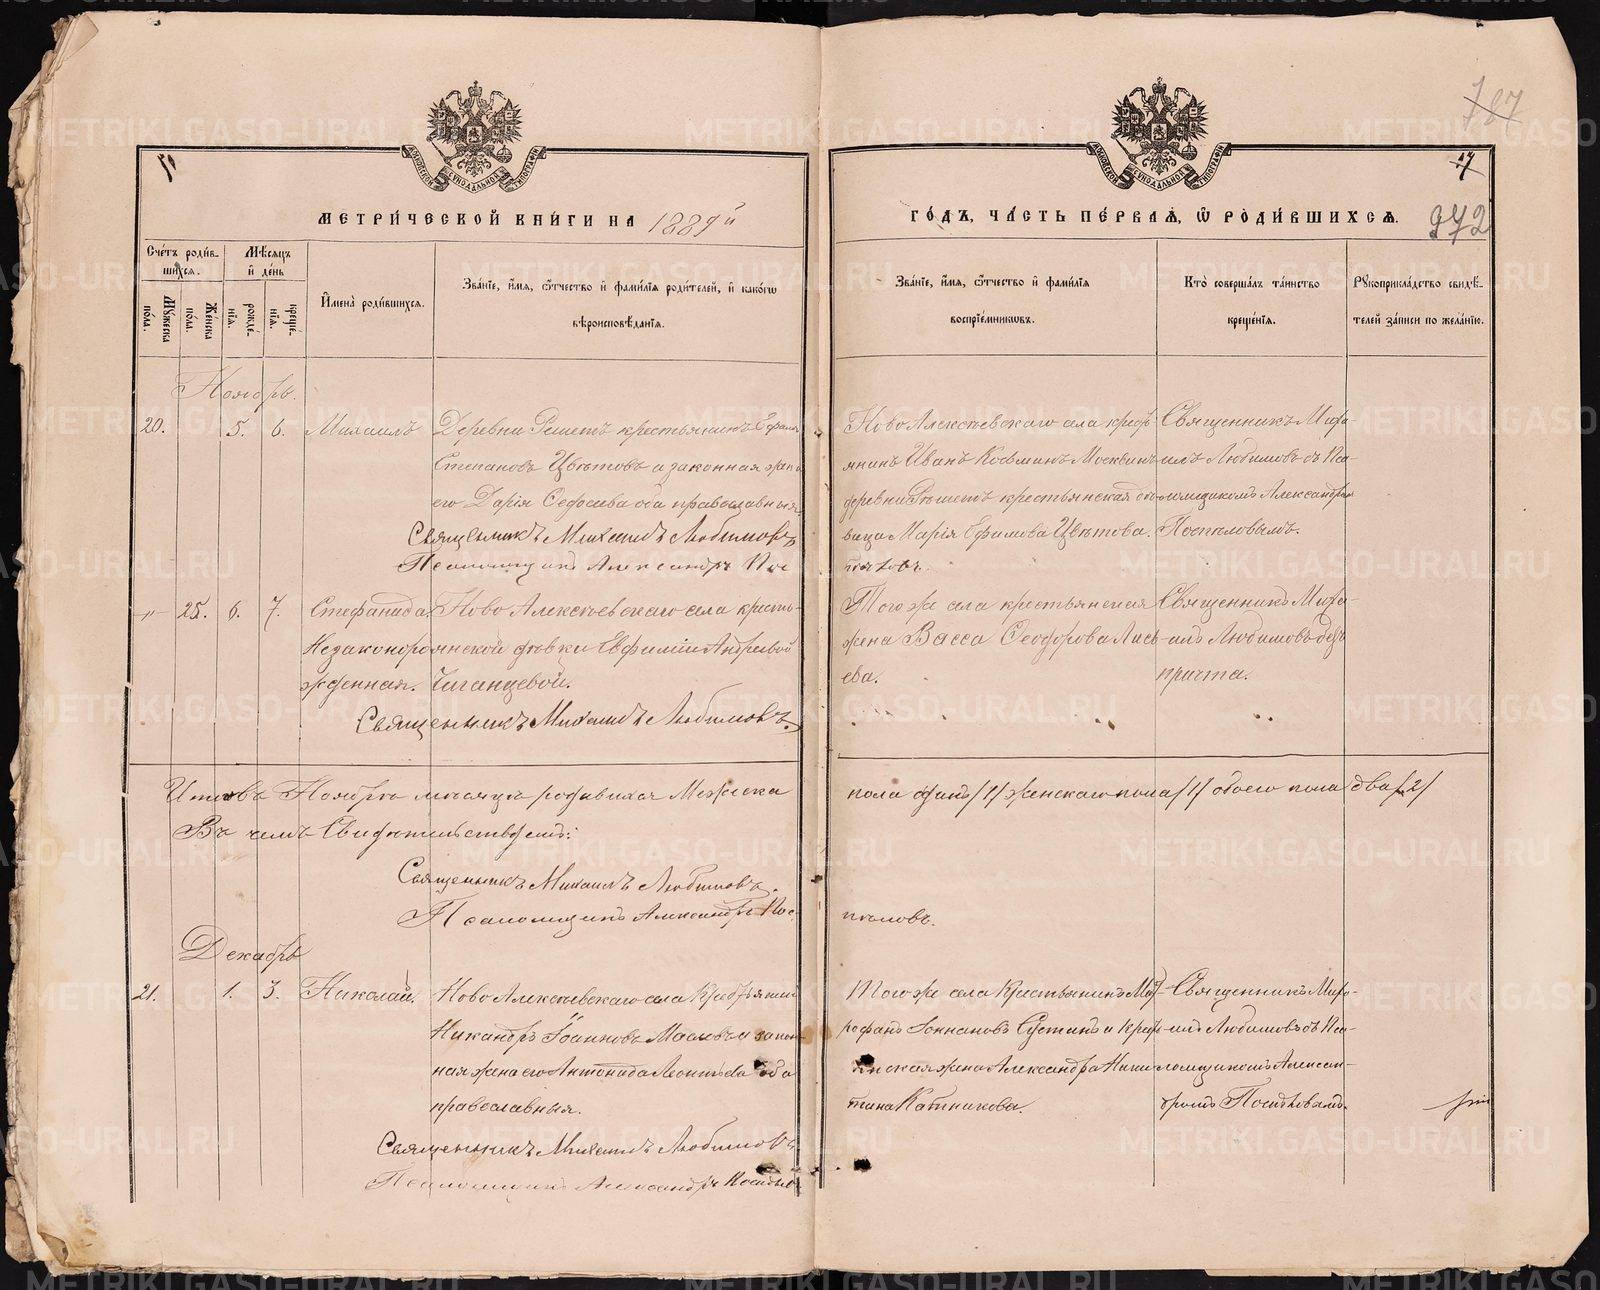 187
17
972
МОСКОВСКОЙ СѴНОДАЛЬНОЙ ТИПОГРАФІИ
МОСКОВСКОЙ СѴНОДАЛЬНОЙ ТИПОГРАФІИ
МЕТРИЧЕСКОЙ КНИГИ НА 1889й
ГОДЪ, ЧАСТЬ ПЕРВАЯ, Ѡ РОДИВШИХСЯ.
Счетъ родив-
шихся.
Мѣсяцъ
и день
Мужеска
пола.
Женска
пола.
рожде-
нія.
креще-
нія.
Имена родившихся.
Званіе, имя, ѿчество и фамилія родителей, и какогѡ
вѣроисповѣданія.
Званіе, имя, ѿчество и фамилія
воспріемникѡвъ.
Кто совершалъ таинство
крещенія.
Рукоприкладство свидѣ-
телей записи по желанію.
Ноябрь.
20. 5. 6. Михаилъ
Деревни Решетъ крестьянинъ Ефимъ
Степановъ Цвѣтовъ а законная жена
его Дарія Федосѣева оба православныя
Священникъ Михаилъ Любимовъ
Псаломщикъ Александръ Пос
Ново Алексѣевскаго села крестъ
янинъ Иванъ Козьминъ Москвинъ
деревни Рѣшетъ крестьянская дѣ-
вица Марія Ефимова Цвѣтова.
Священникъ Миха-
илъ Любимовъ съ Пса-
ломщикомъ Александромъ
25. 6. 7. Стефанида.
Незаконоро-
жденная.
Ново Алексѣевскаго села кресть-
янской дѣвки Евфиміи Андреевой
Чиганцевой.
Священникъ Михаилъ Любимовъ.
Того же села крестьянская
жена Васса Ѳеодорова Лись-
ева.
Священникъ Миха-
илъ Любимовъ безъ
причта.
Итого въ Ноябрѣ мѣсяцѣ родившихся Мужеска
пола одинъ /1/ женскаго пола /1/ обоего пола два /2/
Въ чемъ Свидѣтельствуемъ:
Священникъ Михаилъ Любимовъ.
Псаломщикъ Александръ Пос-
Декабрь
21. 1. 3. Николай.
Ново Алексѣевскаго села Крестьянинъ
Никандръ Іоанновъ Масловъ а закон-
ная жена его Антонида Леонтьева оба
православныя.
Священникъ Михаилъ Любимовъ
Псаломщикъ Александръ
Того же села Крестьянинъ Мит-
рофанъ Іоанновъ Сустинъ и Крест-
янская жена Александра Ники-
тина Кабинкова.
Священникъ Миха-
илъ Любимовъ съ Пса-
ломщикомъ Алексан-
дромъ
METRIKI.GASO-URAL.RU